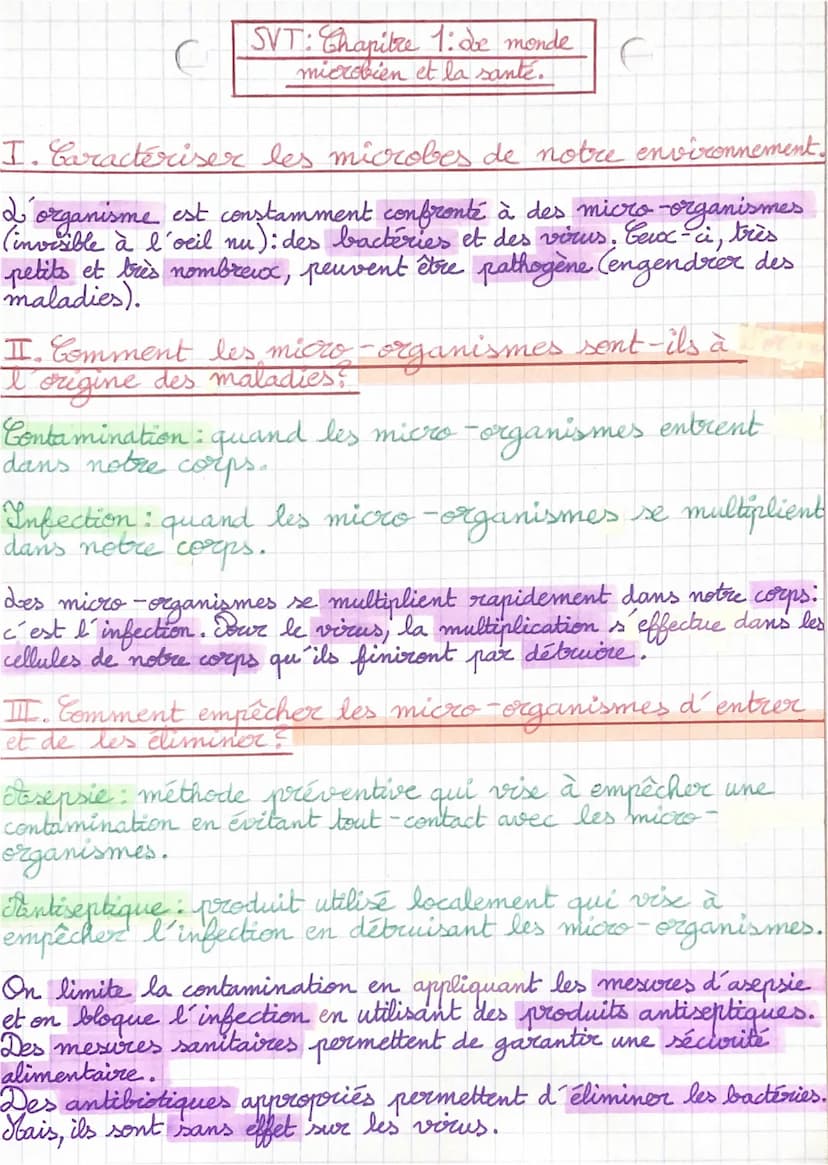 SVT: Chapitre 1: Le monde
microbien et la santé.
I. Caractériser les microbes de notre environnement.
L'organisme est constamment confronté à des micro-organismes
(invisible à l'oeil nu): des bactéries et des virus. Ceux-ci, très
petits et très nombreux, peuvent être pathogène (engendrer des
maladies).
II. Comment les micro-organismes sont-ils à
l'origine des maladies?
Contamination: quand les micro-organismes entrent
dans notre corps.
Infection: quand les micro-organismes se multiplient
dans notre corps.
Les micro-organismes se multiplient rapidement dans notre corps:
c'est l'infection. Pour le virus, la multiplication s'effectue dans les
cellules de notre corps qu'ils finiront par détruire.
III. Comment empêcher les micro-organismes d'entrer
et de les éliminer?
Asepsie: méthode préventive qui vise à empêcher une
contamination en évitant tout-contact avec les micro-
organismes.
Antiseptique: produit utilisé localement qui vise à
empêcher l'infection en détruisant les micro-organismes.
On limite la contamination en appliquant les mesures d'asepsie
et on bloque l'infection en utilisant des produits antiseptiques.
Des mesures sanitaires permettent de garantir une sécurité
alimentaire.
Des antibiotiques appropriés permettent d'éliminer les bactéries.
Mais, ils sont sans effet sur les virus.